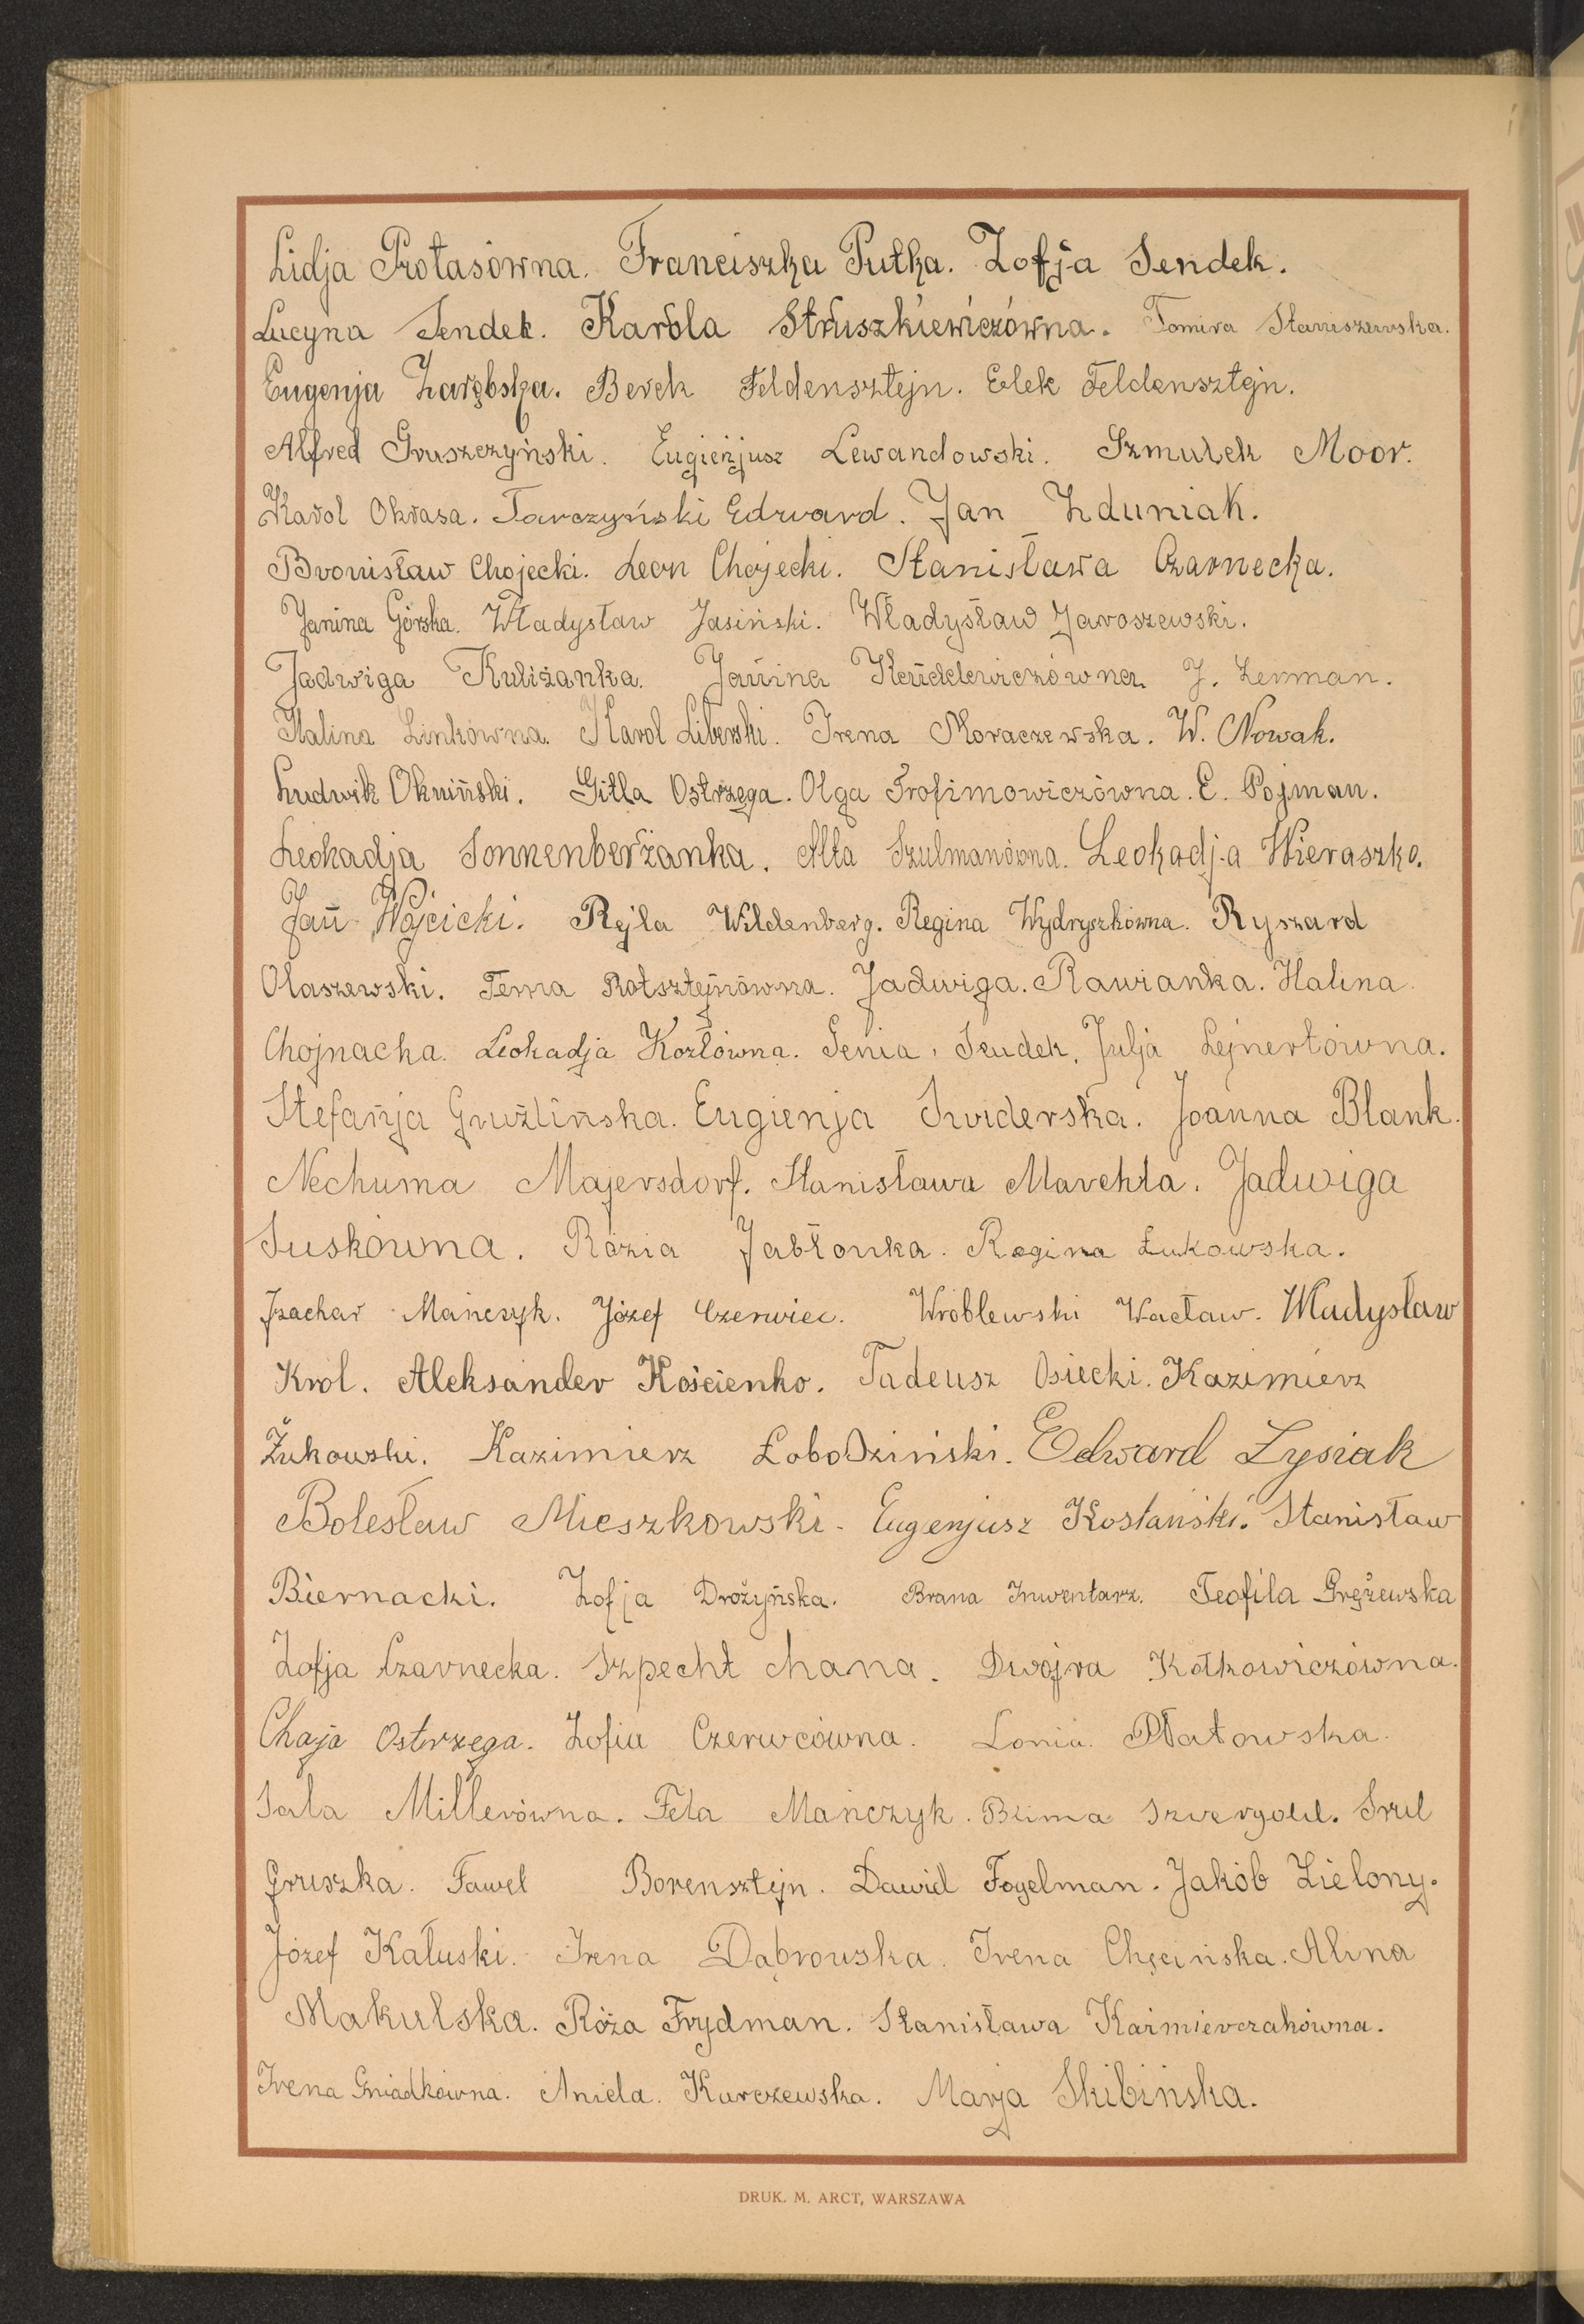 Lidja Protasówna. Franciszka Putka. Zofja Sendek.
Lucyna Sendek. Karola Struszkiewiczówna. Tomira Staniszewska.
Eugenja Zarębska. Berek Feldensztejn. Elek Feldensztejn.
Alfred Gruszczyński. Eugienjusz Lewandowski. Szmulek Moor.
Karol Okrasa. Tarczyński Edward. Jan Zduniak.
Bronisław Chojecki. Leon Chojecki. Stanisława Czarnecka.
Janina Górska. Władysław Jasiński. Władysław Jaroszewski.
Jadwiga Kuliżanka. Janina J. Lerman.
Halina Linkówna. Karol Liberski. Irena Moraczewska. W. Nowak.
Ludwik Okniński. Gitla Ostrzega. Olga Trofimowiczówna. E. Pojman.
Leokadja Sonnenberżanka. Ałła Szulmanówna. Leokadja Wieraszko.
Jan Wójcicki. Rejla Wildenberg. Regina Wydryszkówna. Ryszard
Olaszewski. Tema Rotsztejnówna. Jadwiga. Rawianka. Halina
Chojnacka. Leokadja Kozłówna. Genia. Sendek. Julja Lejnertówna.
Stefanja Gruźlińska. Eugienja Swiderska. Joanna Blank.
Nechuma Majersdorf. Stanisława Marchła. Jadwiga
Suskówna. Rózia Jabłonka. Regina Łukowska.
Izachar Mańczyk. Józef Czerwiec. Wróblewski Wacław. Władysław
Krol. Aleksander Kościenko. Tadeusz Osiecki. Kazimierz
Żukowski. Kazimierz Łobodziński. Edward Łysiak
Bolesław Mieszkowski. Eugenjusz Kostański. Stanisław
Biernacki. Zofja Drożyńska. Brana Inwentarz. Teofila Grężewska
Zofja Czarnecka. Szpecht Chana. Dwojra Kotkowiczówna.
Chaja Ostrzega. Zofia Czerwcówna. Lonia. Płatowska.
Sala Millerówna. Fela Mańczyk. Blima Szwergold. Srul
Gruszka. Fawel Borensztejn. Dawid Fogelman. Jakób Zielony.
Józef Kałuski. Irena Dąbrowska. Irena Chęcińska. Alina
Makulska. Róża Frydman. Stanisława Kaźmierczakówna.
Irena Gniadkówna. Aniela. Kurczewska. Marja Skibińska.
DRUK. M. ARCT, WARSZAWA